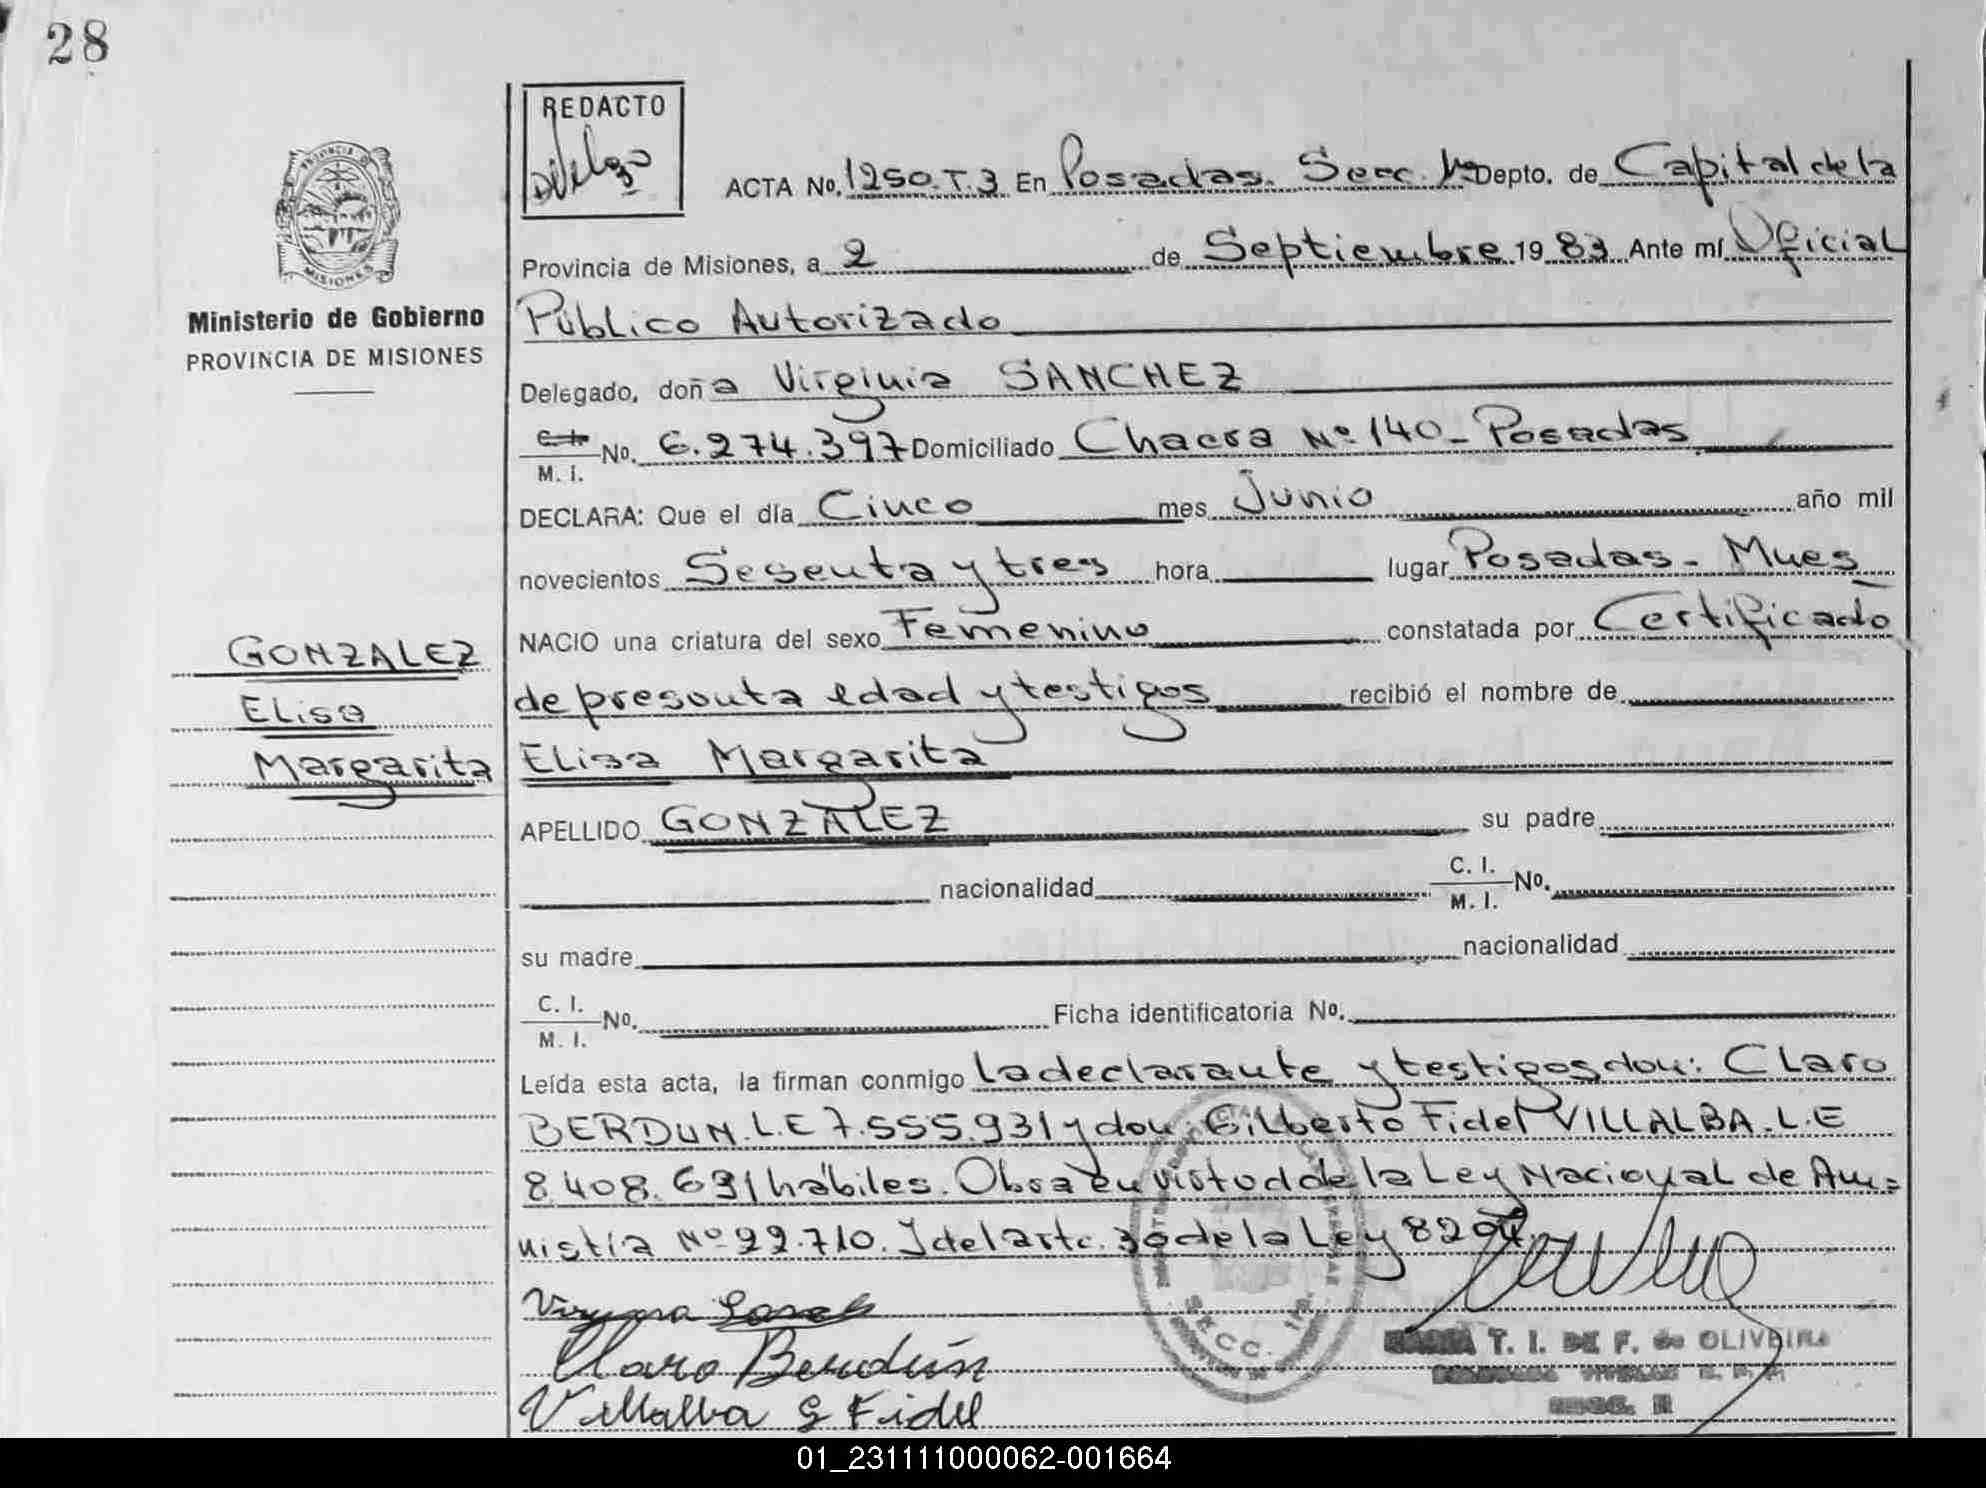 28
REDACTO
PROVINCIA DE
MISIONES
Ministerio de Gobierno
PROVINCIA DE MISIONES
ACTA No. 1250.T.3 En Posadas. Secc. 1ª Depto. de Capital de la
Provincia de Misiones, a 2 de Septiembre 1983 Ante mí Oficial
Público Autorizado
Delegado, doña Virginia SANCHEZ
C. I. / M. I. No. 6.274.397 Domiciliado Chacra Nº 140 - Posadas
DECLARA: Que el día Cinco mes Junio año mil
novecientos Sesenta y tres hora lugar Posadas - Mnes
NACIO una criatura del sexo Femenino constatada por Certificado
de presunta edad y testigos recibió el nombre de
Elisa Margarita
APELLIDO GONZALEZ su padre
nacionalidad C. I. / M. I. No.
su madre nacionalidad
C. I. / M. I. No. Ficha identificatoria No.
Leída esta acta, la firman conmigo La declarante y testigos don: Claro
BERDUN. L.E 7.555.931 y don: Gilberto Fidel VILLALBA. L.E
8.408.691 hábiles. Obra en virtud de la Ley Nacional de Am=
nistía Nº 22.710. Y del artc. 30 de la Ley 8204
Claro Berdún
Villalba G Fidel
GONZALEZ
Elisa
Margarita
SECC. 1ra.
MARIA T. I. DE F. de OLIVEIRA
01_231111000062-001664